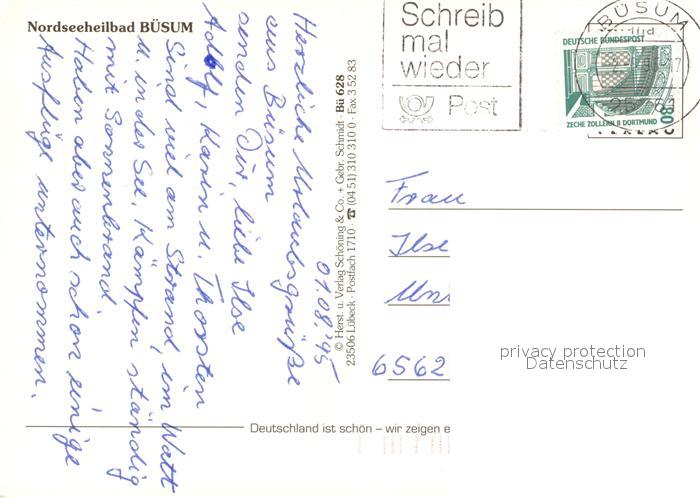 Nordseeheilbad BÜSUM
01.08.'95
Herzliche Urlaubsgrüße
aus Büsum
senden Dir, liebe Ilse
Adolf, Karin u. Thorsten
Sind viel am Strand, im Watt
u. in der See, Kämpfen ständig
mit Sonnenbrand
Haben aber auch schon einige
Ausflüge unternommen.
© Herst. u. Verlag Schöning & Co. + Gebr. Schmidt · Bü 628
23506 Lübeck · Postfach 1710 · ☎ (04 51) 310 310 0 · Fax 3 52 83
Schreib
mal
wieder
Post
BÜSUM
DEUTSCHE BUNDESPOST
80
ZECHE ZOLLERN II DORTMUND
Frau
Ilse
6562
privacy protection
Datenschutz
Deutschland ist schön – wir zeigen e